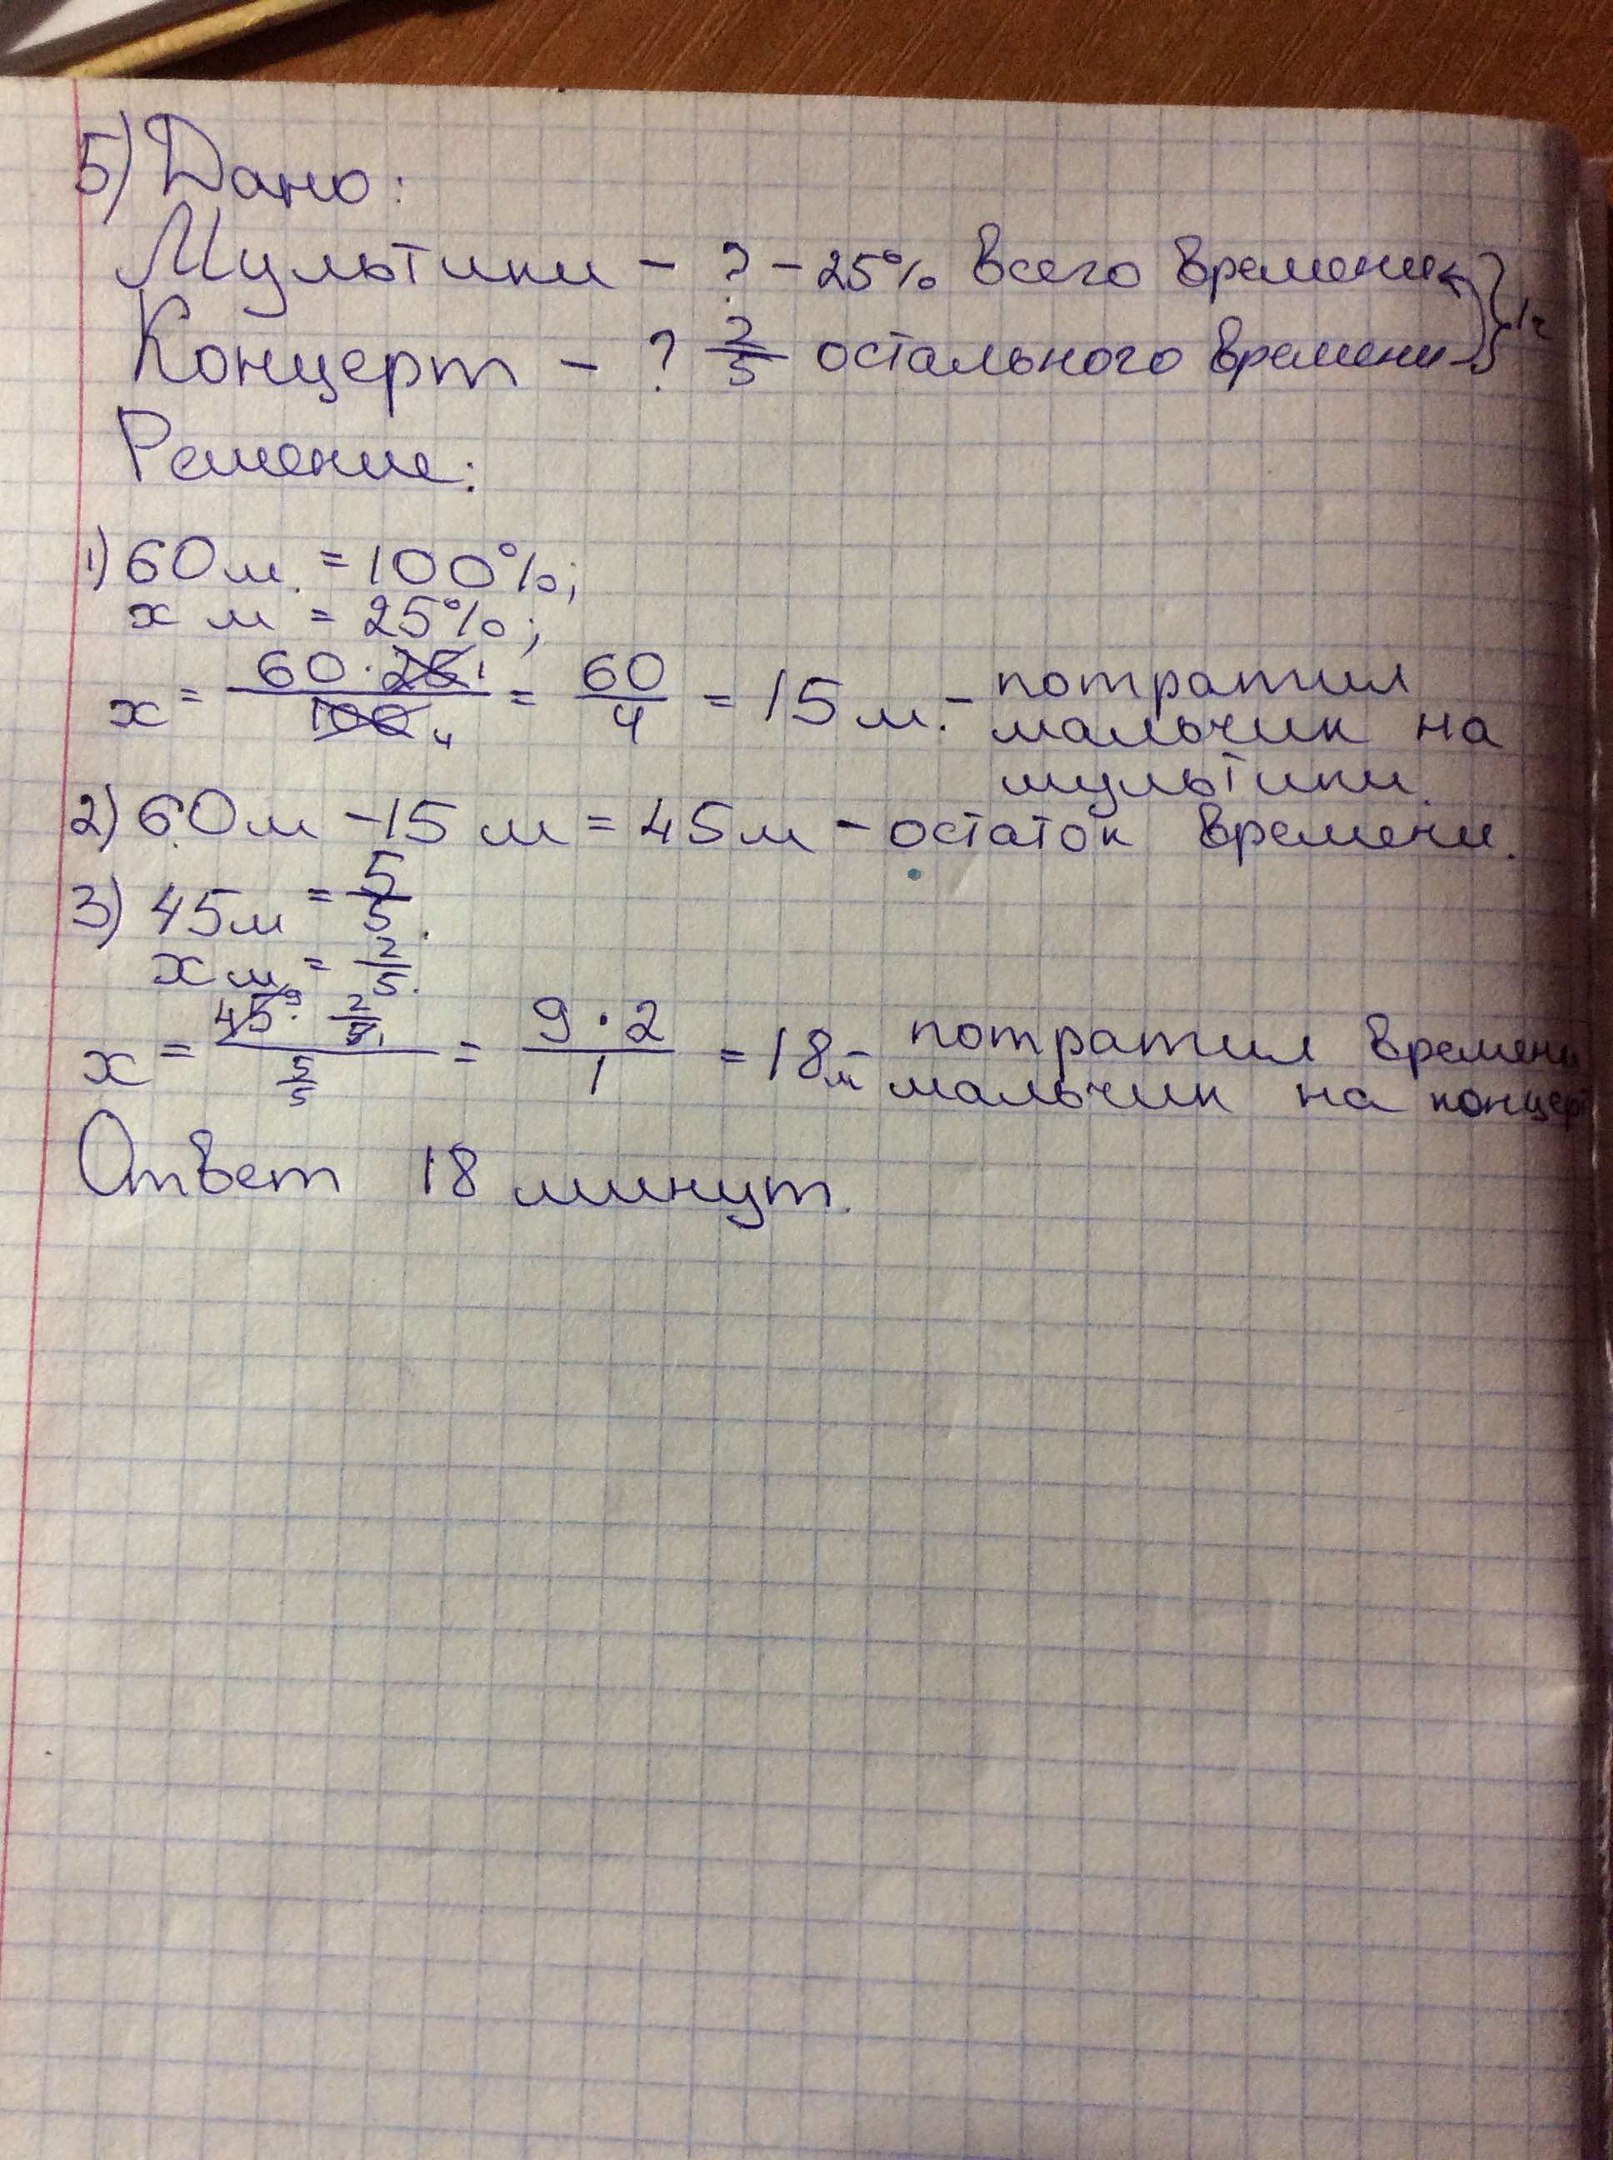 5) Дано:
Мультики - ? - 25% всего времени } 1ч
Концерт - ? 2/5 остального времени
Решение:
1) 60м. = 100%;
х м = 25%;
х = 60 · 25 1 / 100 4 = 60/4 = 15м. - потратил
мальчик на
мультики.
2) 60м - 15м = 45м - остаток времени.
3) 45м = 5/5.
х м = 2/5.
х = 45 9 · 2/5 1 / 5/5 = 9 · 2 / 1 = 18м - потратил времени
мальчик на концерт
Ответ 18 минут.